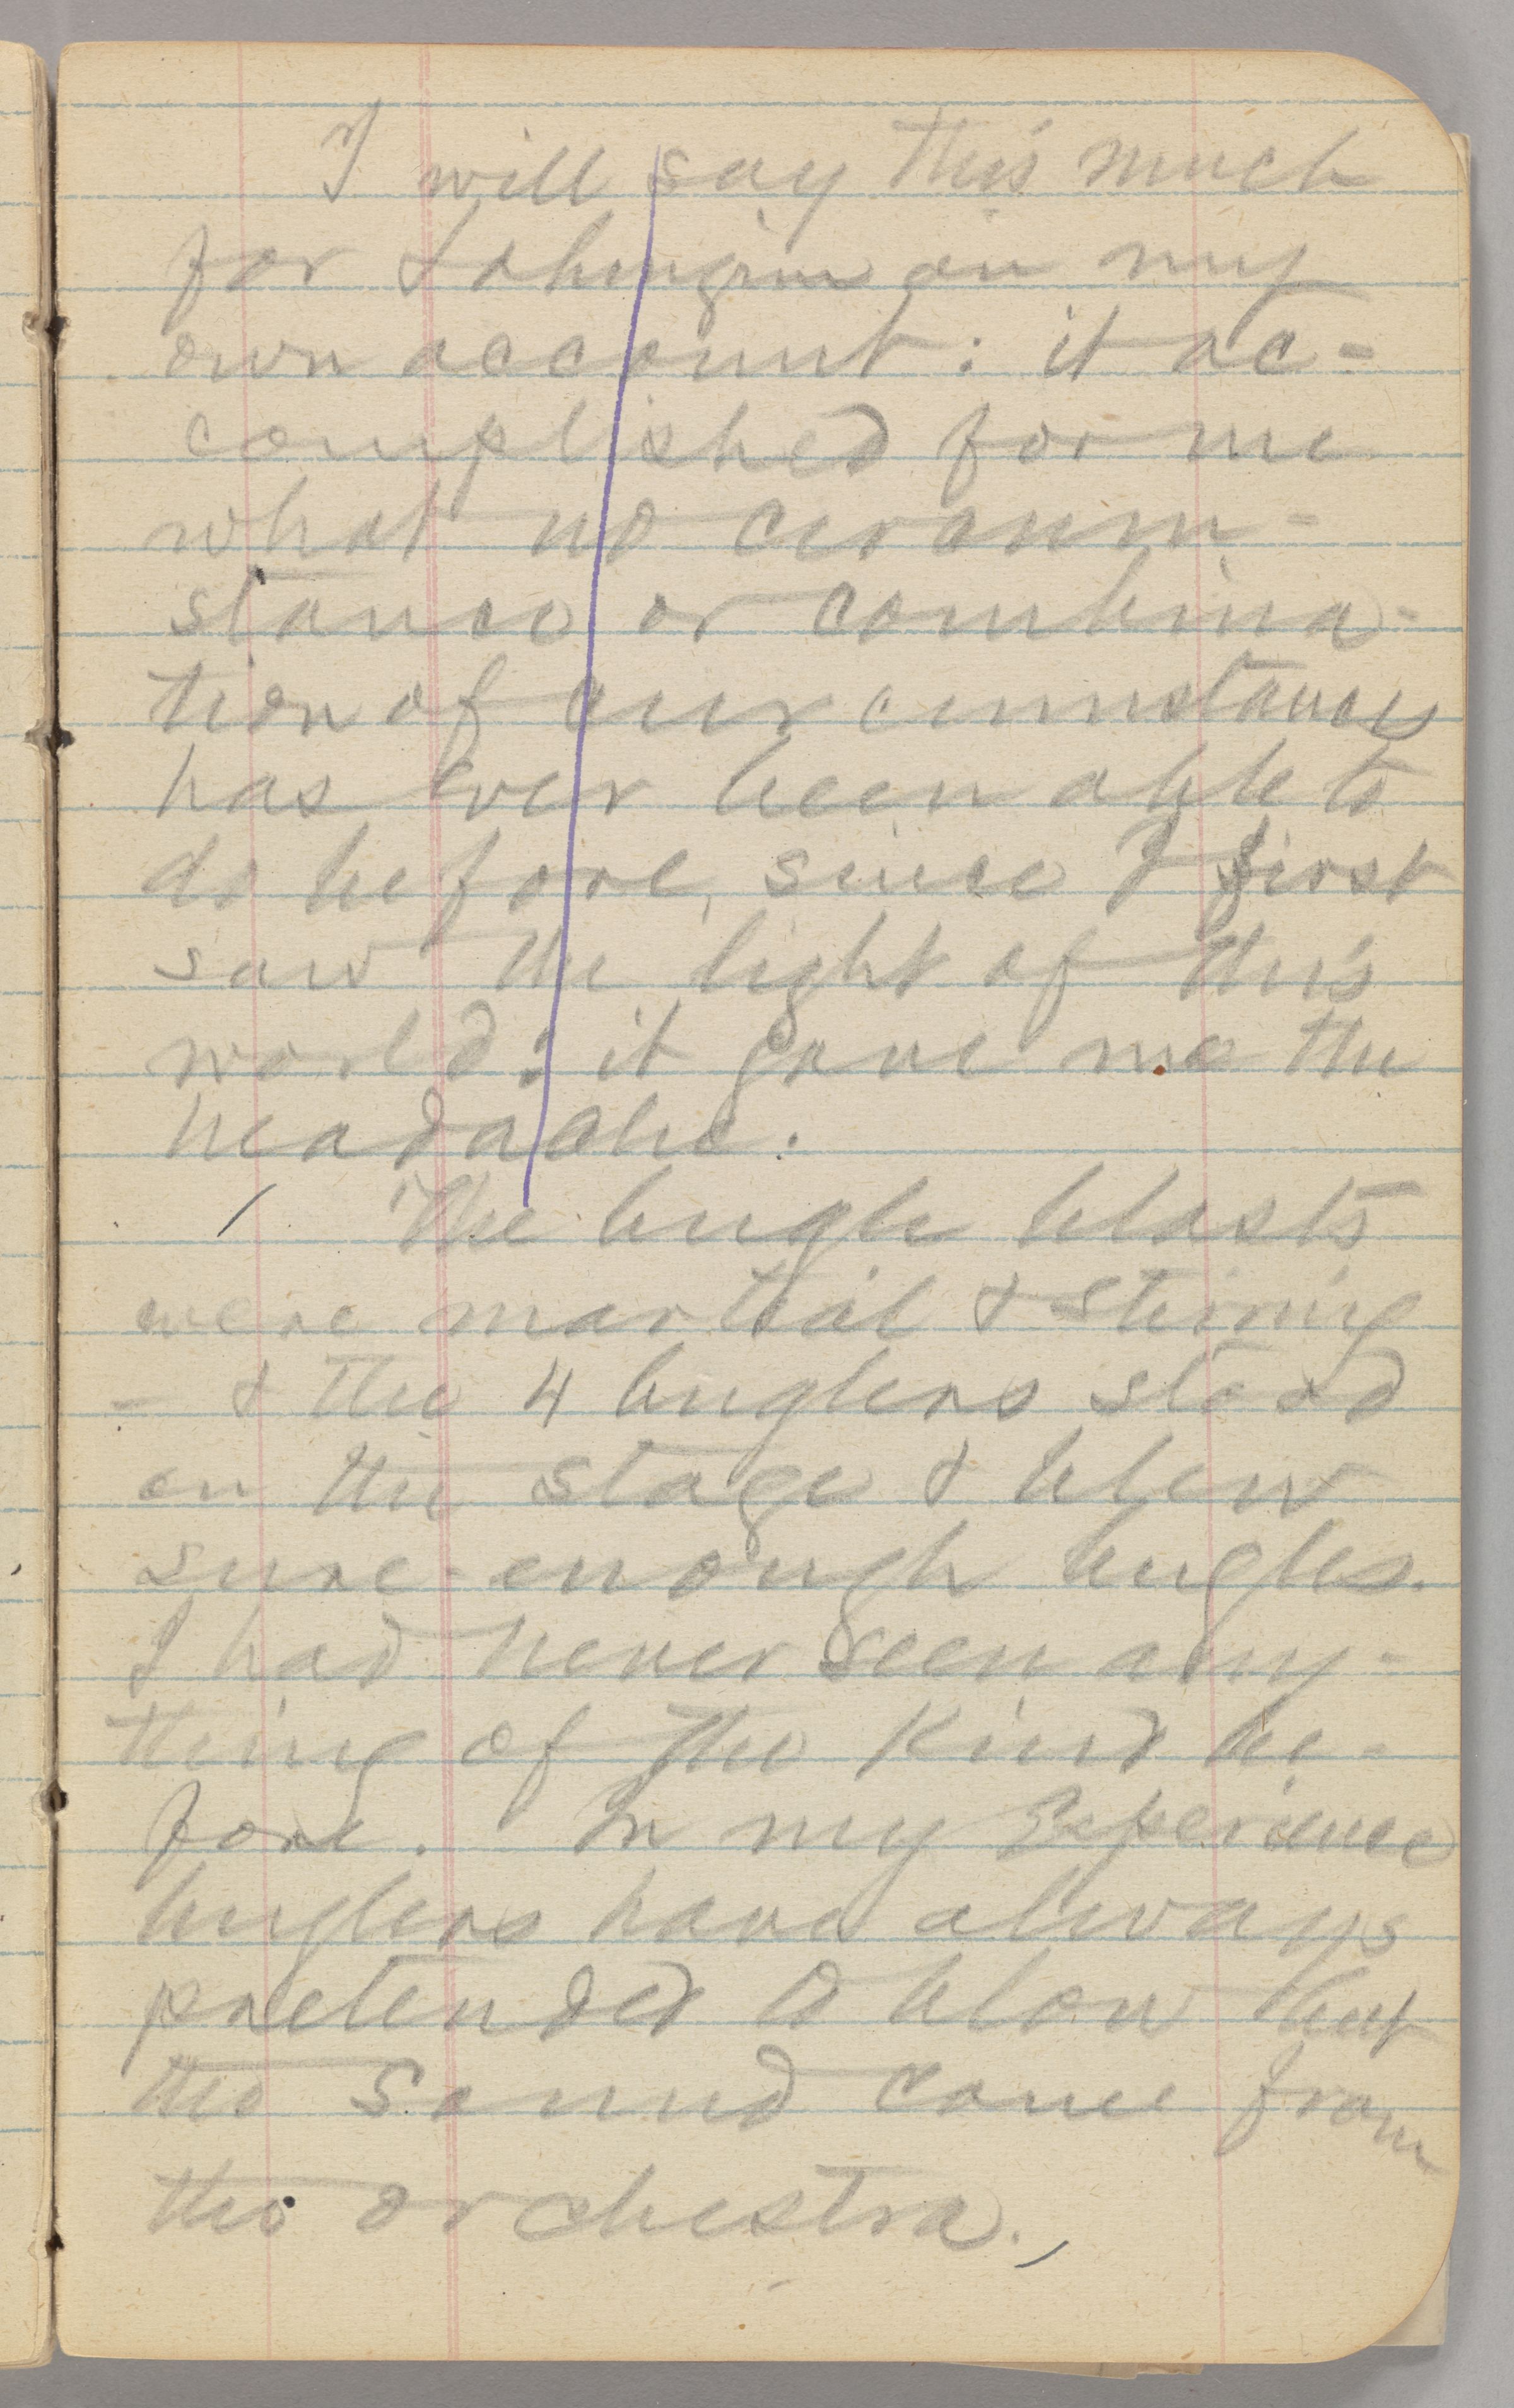 I will say this much
for Lohengrin on my
own account: it ac-
complished for me
what no circum-
stance or combina-
tion of circumstances
has ever been able to
do before, since I first
saw the light of this
world: it gave me the
headache.
The bugle blasts
were martial & stirring
- & the 4 buglers stood
on the stage & blew
sure-enough bugles.
I had never seen any-
thing of the kind be-
fore. In my experience
buglers have always
pretended to blow but
the sound came from
the orchestra.